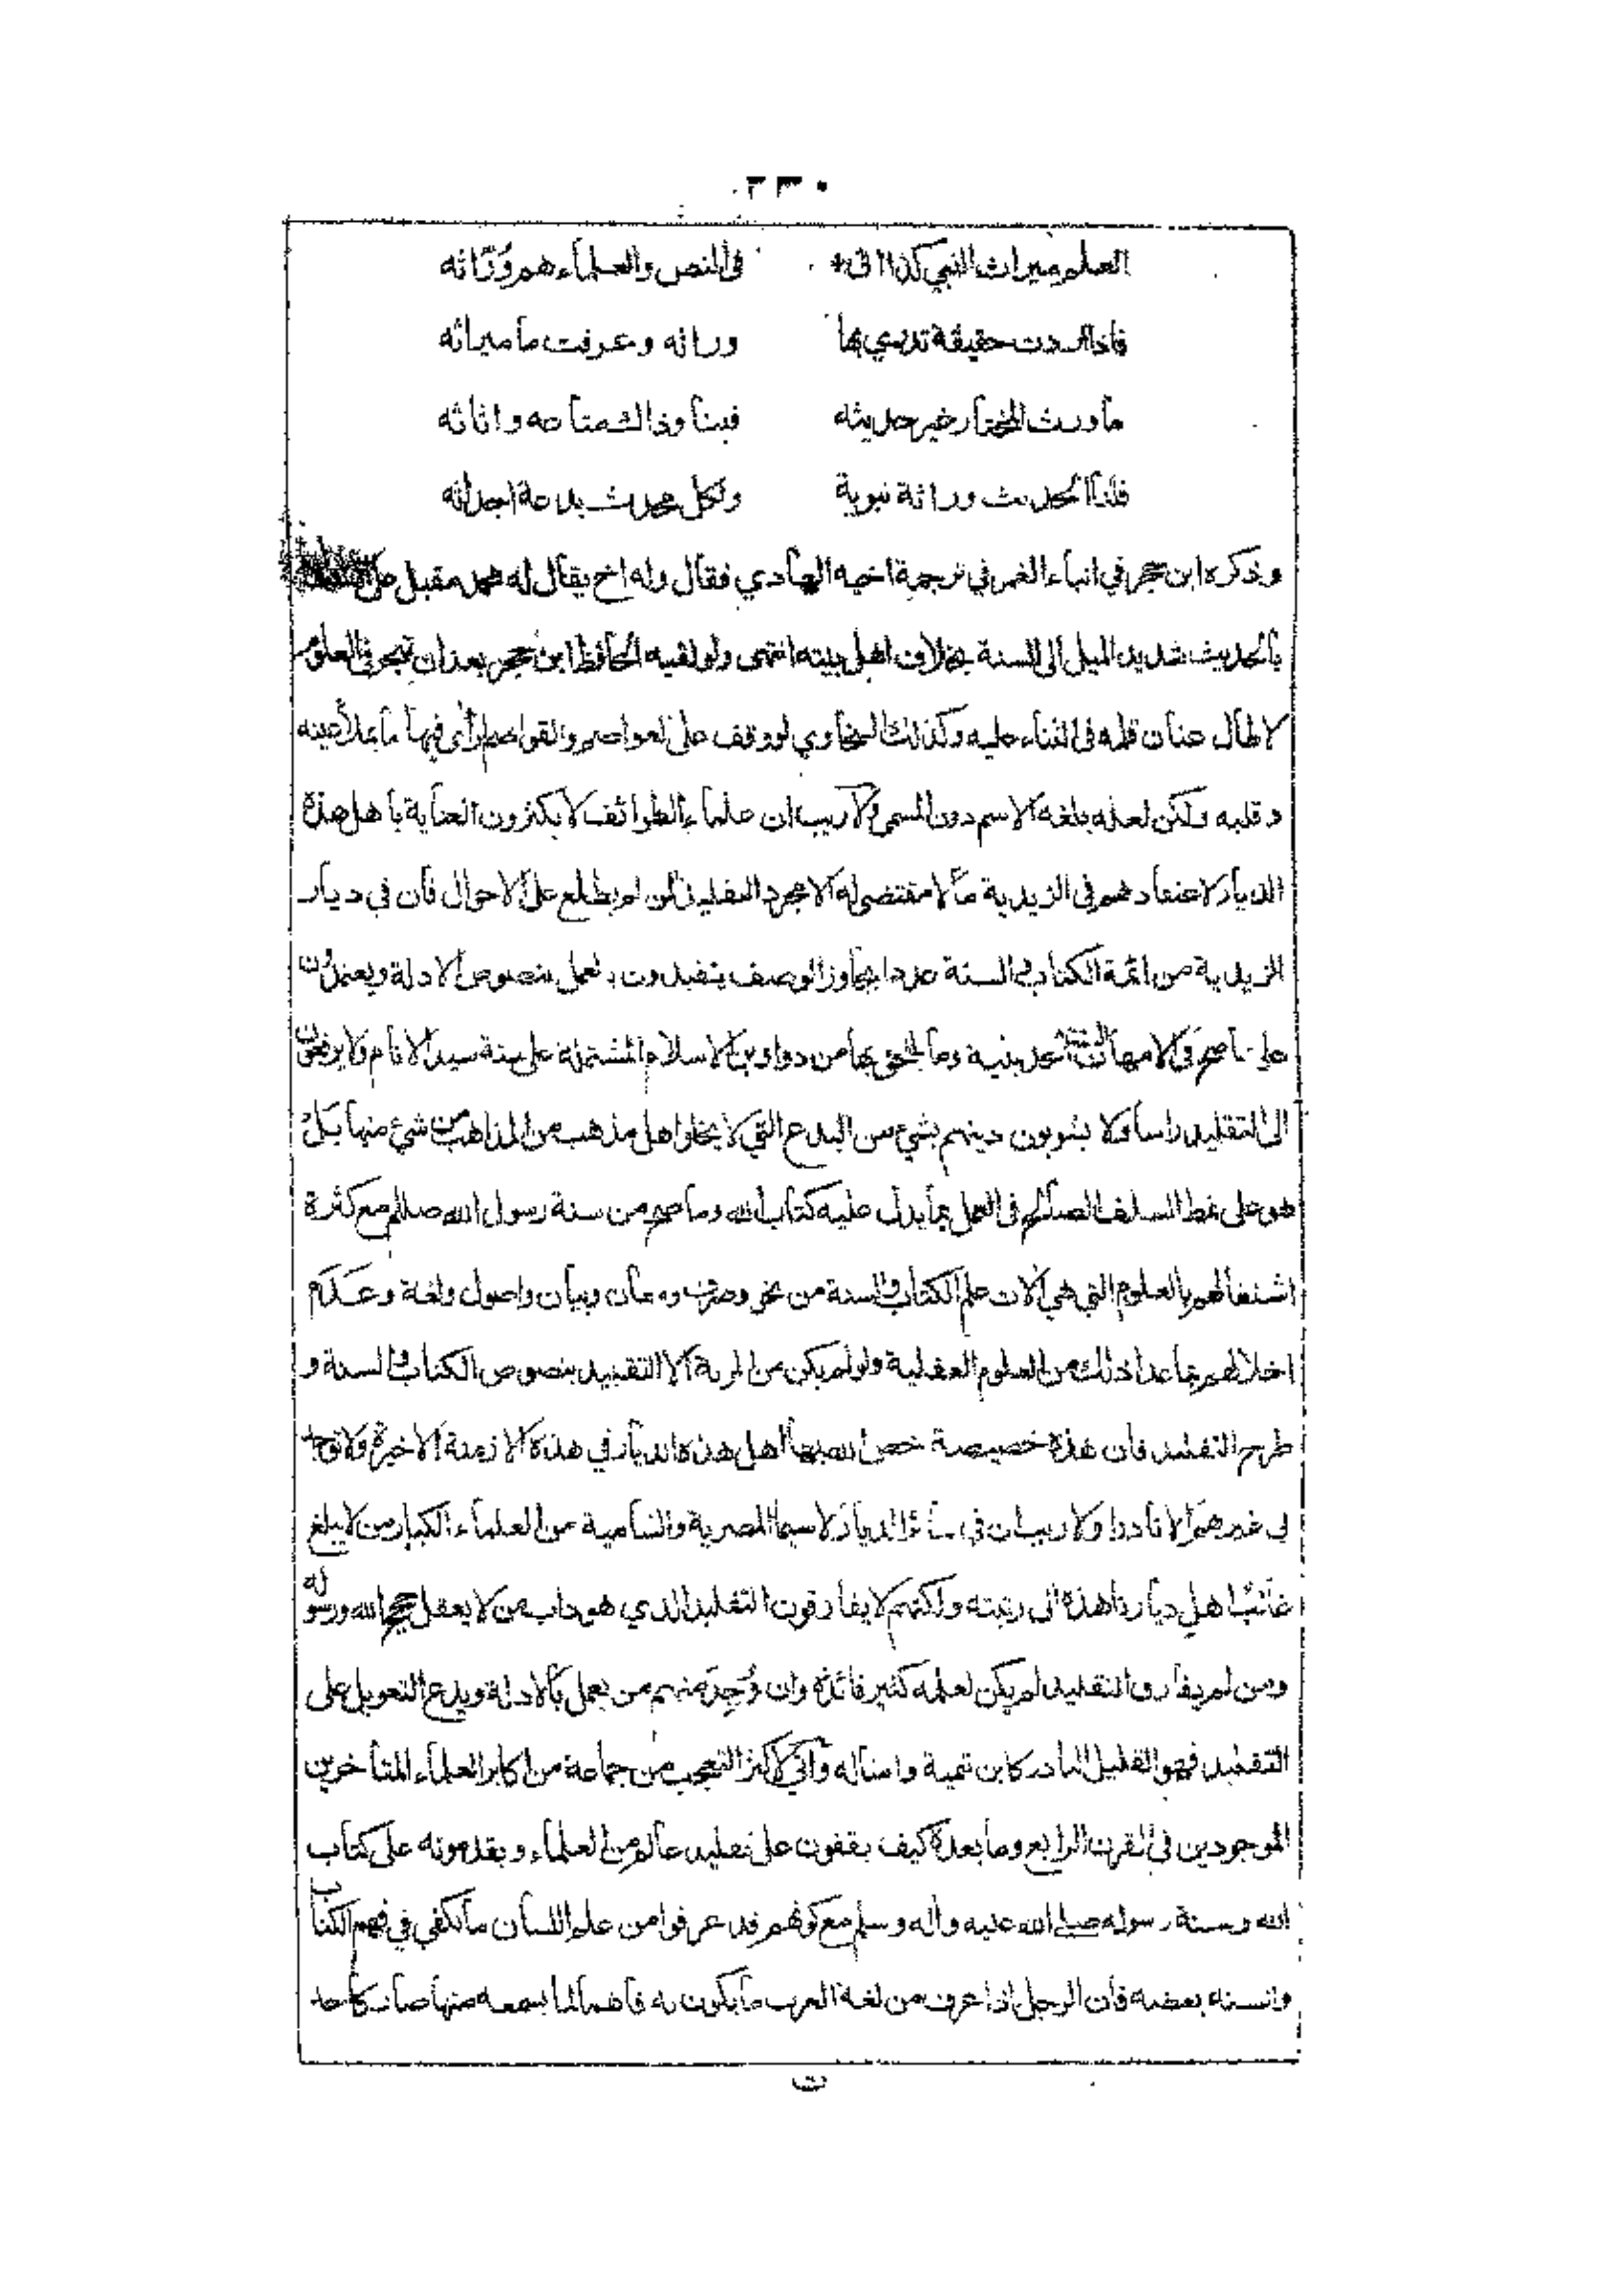 ٢٣٠
العلم ميراث النبي كذا اتى * في النص والعلماء هم وُرّاثه
فاذا اردت حقيقة تدري بها وراثه وعرفت ما ميراثه
ما ورث المختار غير حديثه فينا وذاك متاعه واثاثه
فلنا الحديث وراثة نبوية ولكل محدث بدعة احداثه
وذكره ابن حجر في انباء الغمر في ترجمة اخيه الهادي فقال وله اخ يقال له محمد مقبل على
بالحديث شديد الميل الى السنة بخلاف اهل بيته انتهى ولو لقيه الحافظ ابن حجر بعد ان تبحر في العلوم
لاطال عنان قلمه في الثناء عليه وكذلك السخاوي لو وقف على العواصم والقواصم لرأى فيها ما يملأ عينه
وقلبه ولكن لعله بلغه الاسم دون المسمى ولا ريب ان علماء الطوائف لا يكثرون العناية باهل هذه
الديار لاعتقادهم في الزيدية ما لا مقتضى له الا مجرد التقليد لمن لم يطلع على الاحوال فان في ديار
الزيدية من ائمة الكتاب والسنة عددا يجاوز الوصف يتقيدون بالعمل بنصوص الادلة ويعتمدون
على ما صح في الامهات الحديثية وما يلتحق بها من دواوين الاسلام المشتملة على سنة سيد الانام ولا يرفعون
الى التقليد راسا ولا يشوبون دينهم بشيء من البدع التي لا يخلو اهل مذهب من المذاهب من شيء منها بَلْ
هو على نمط السلف الصالح في العمل بما يدل عليه كتاب الله وما صح من سنة رسول الله صللم مع كثرة
اشتغالهم بالعلوم التي هي آلات علم الكتاب والسنة من نحو وصرف ومعان وبيان واصول ولغة وعَدَم
اخلالهم بما عدا ذلك من العلوم العقلية ولو لم يكن من المزية الا التقييد بنصوص الكتاب والسنة و
طرح التقليد فان هذه خصيصة خص الله بها اهل هذه الديار في هذه الازمنة الاخيرة ولا توجد
في غيرهم الا نادرا ولا ريب ان في سائر الديار لا سيما المصرية والشامية من العلماء الكبار من لا يبلغ
غالب اهل ديارنا هذه الى رتبته ولكنهم لا يفارقون التقليد الذي هو داب من لا يعقل حجج الله ورسوله
ومن لم يفارق التقليد لم يكن لعلمه كثير فائدة وان وُجِدَ منهم من يعمل بالادلة ويدع التعويل على
التقليد فهو القليل النادر كابن تيمية وامثاله واني لاكثر التعجب من جماعة من اكابر العلماء المتأخرين
الموجودين في القرن الرابع وما بعده كيف يقفون على تقليد عالم من العلماء ويقدمونه على كتاب
الله وسنة رسوله صلى الله عليه وآله وسلم مع كونهم قد عرفوا من علم اللسان ما يكفي في فهم الكتاب
والسنة بعضه فان الرجل اذا عرف من لغة العرب ما يكون به فاهما لما يسمعه منها صار كأحد